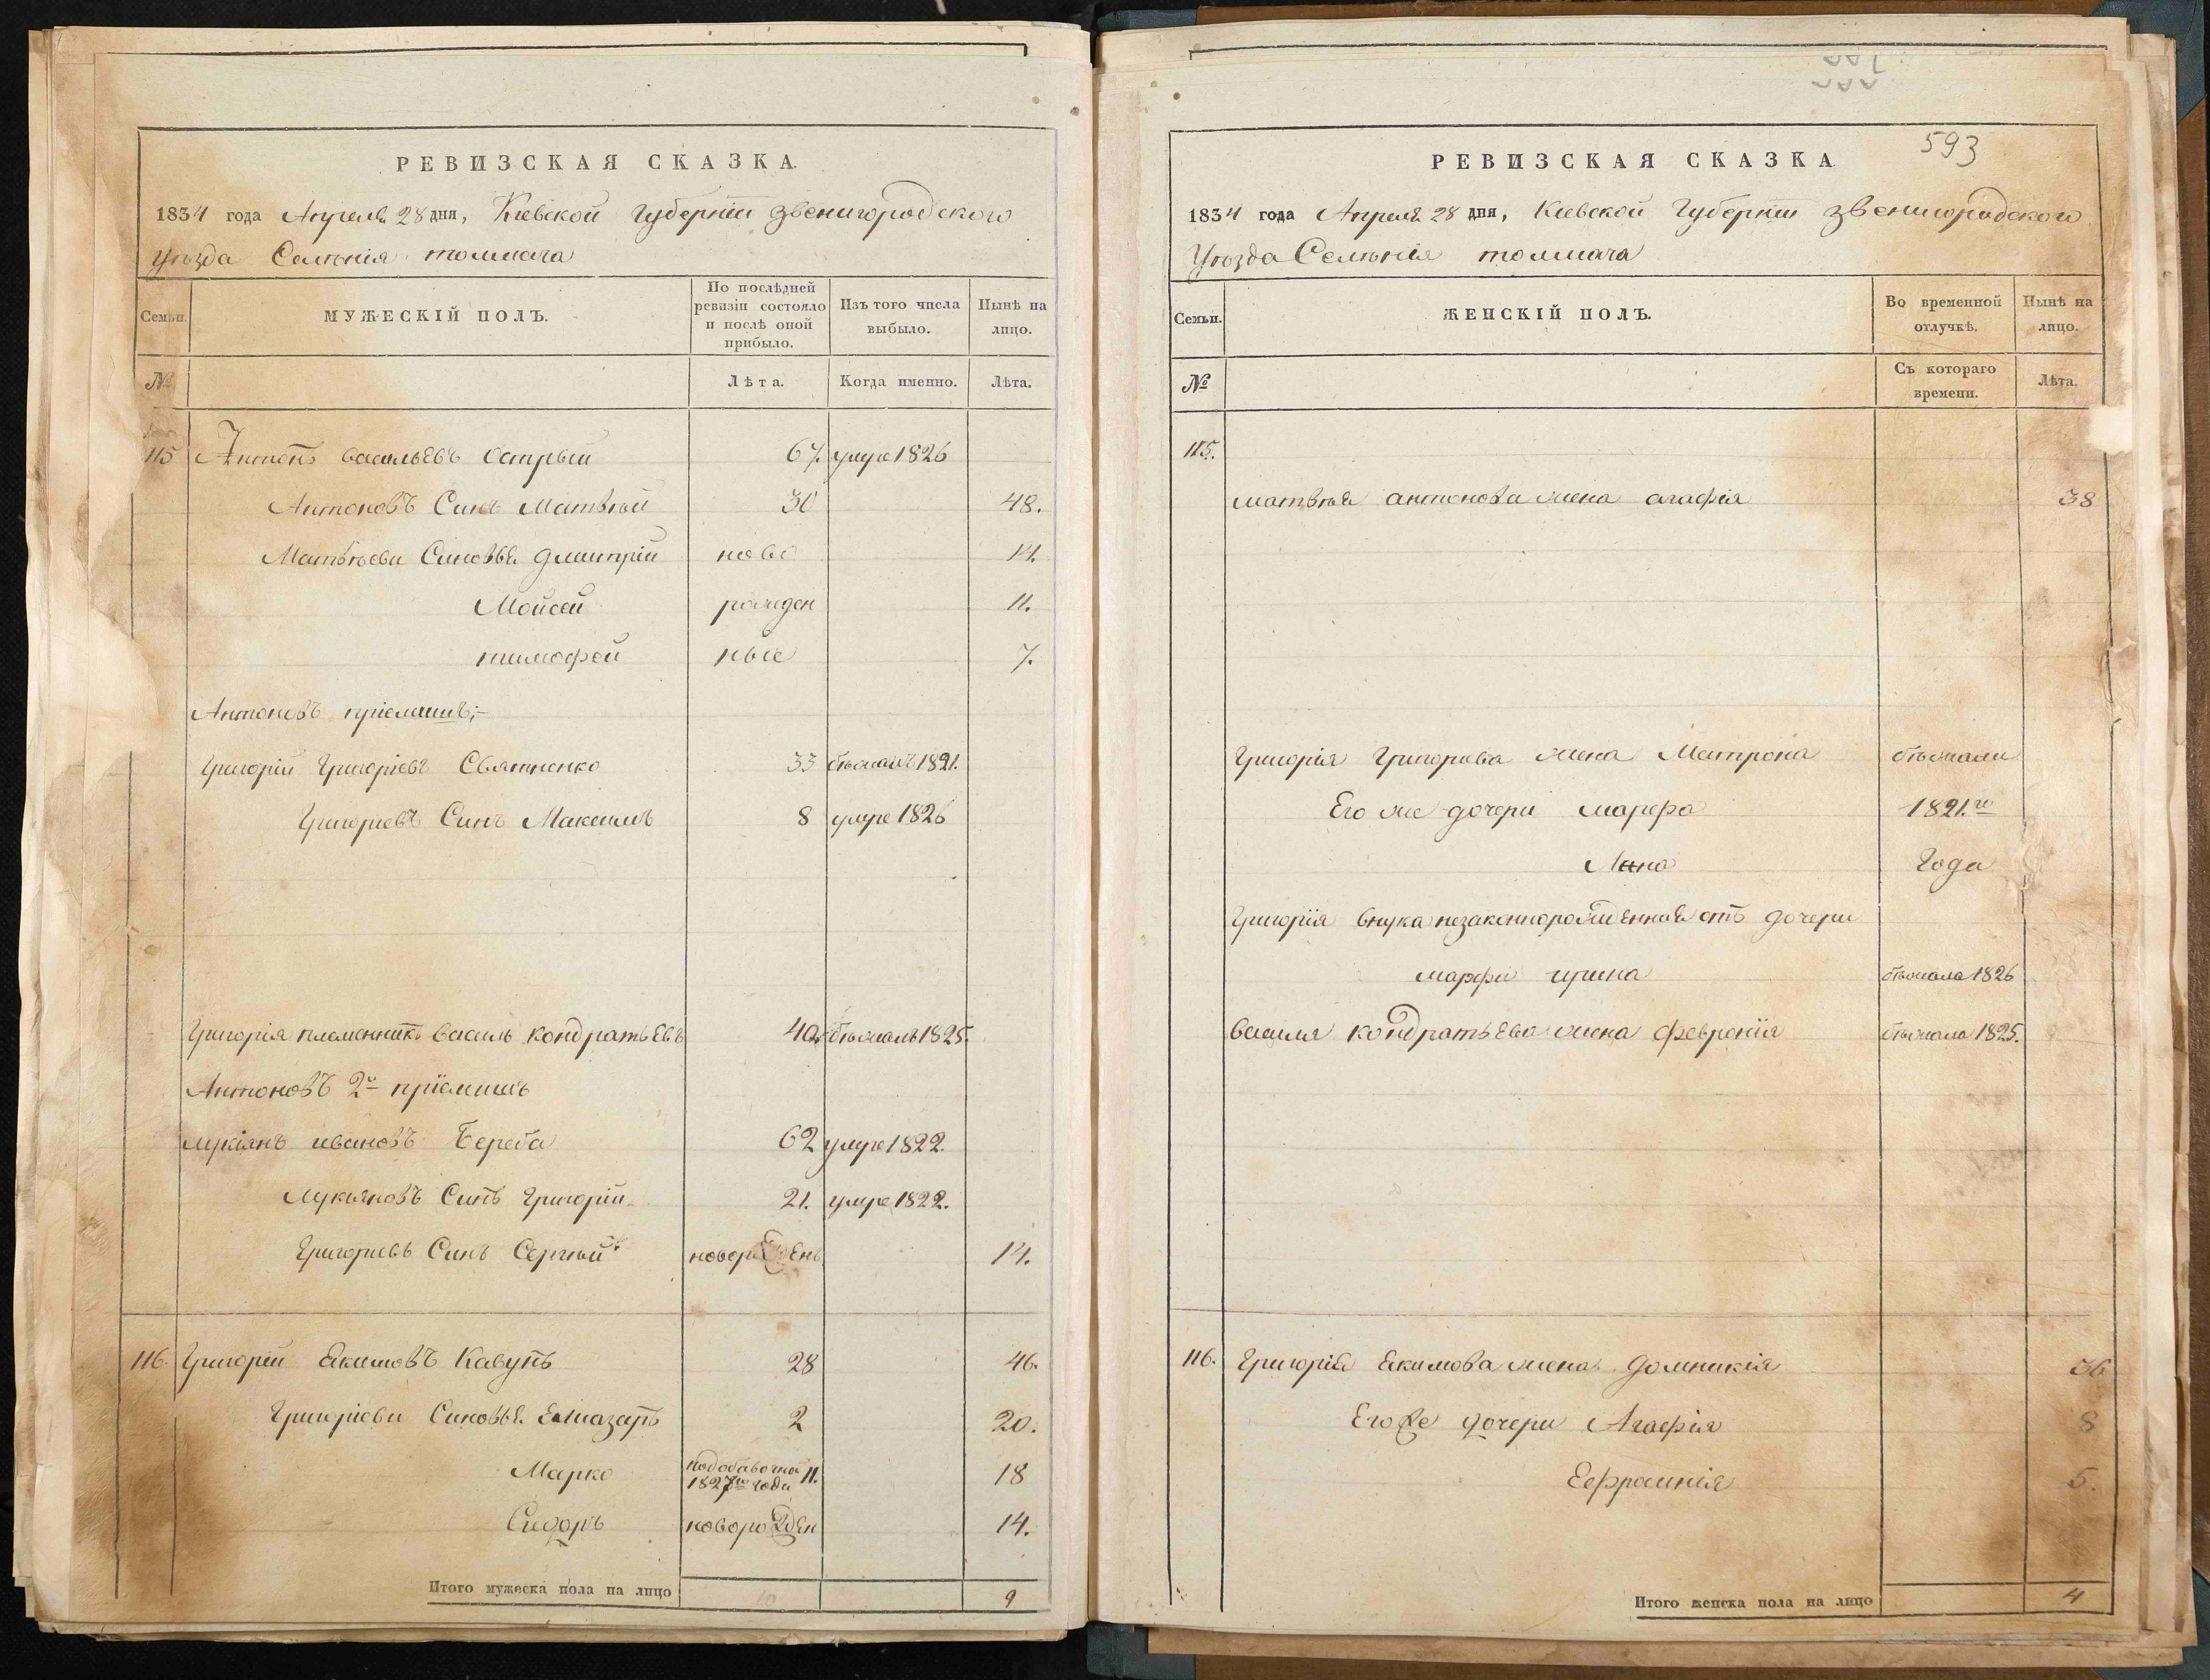 РЕВИЗСКАЯ СКАЗКА
1834 года Апреля 28 дня, Кіевской Губерніи Звенигородского
Уѣзда Селѣнія толмача
Семьи.
МУЖЕСКІЙ ПОЛЪ.
По послѣдней ревизіи состояло и послѣ оной прибыло.
Изъ того числа выбыло.
Нынѣ на лицо.
№
Лѣта.
Когда именно.
Лѣта.
115 Антонъ васильевъ Острый 67. умре 1826
Антоновъ Синъ Матвѣй 30 48.
Матвѣеви Синовья Дмитрій ново 14.
Мойсей рожден 11.
тимофей ные 7.
Антоновъ пріемишъ;-
Григорій Григоріевъ Святненко 33 бѣжалъ 1821.
Григориевъ Синъ Максимъ 8 умре 1826
Григорія племенникъ Василь Кондратьевъ 40 бѣжалъ 1825.
Антоновъ 2й пріемишъ
лукіянъ ивановъ Береба 62 умре 1822.
Лукияновъ Синъ Григорій 21. умре 1822.
Григориевъ Синъ Сергѣй новорожденъ 14.
116. Григорій Екимовъ Кавунъ 28 46.
Григоріеви Синовья Елиазаръ 2 20.
Марко подобавочной 1827го года 11. 18
Сидоръноворожден 14.
Итого мужеска пола на лицо 9
593
РЕВИЗСКАЯ СКАЗКА
1834 года Апреля 28 дня, Кіевской Губерніи Звенигородского
Уѣзда Селѣнія толмача
Семьи.
ЖЕНСКІЙ ПОЛЪ.
Во временной отлучкѣ.
Нынѣ на лицо.
№
Съ котораго времени.
Лѣта.
115.
матвѣя антонова жена агафія 38
Григорія Григориева жена Матрона бѣжали
Его же дочери марфа 1821.го
Года
Григорія внука незаконнорожденная отъ дочери
марфи ирина бѣжала 1826
василя кондратьева жена февронія бѣжала 1825.
116. Григорія Екимова жена Домникія 36
Его же дочери Агафія 8
Еефросинія 5.
Итого женска пола на лицо 4